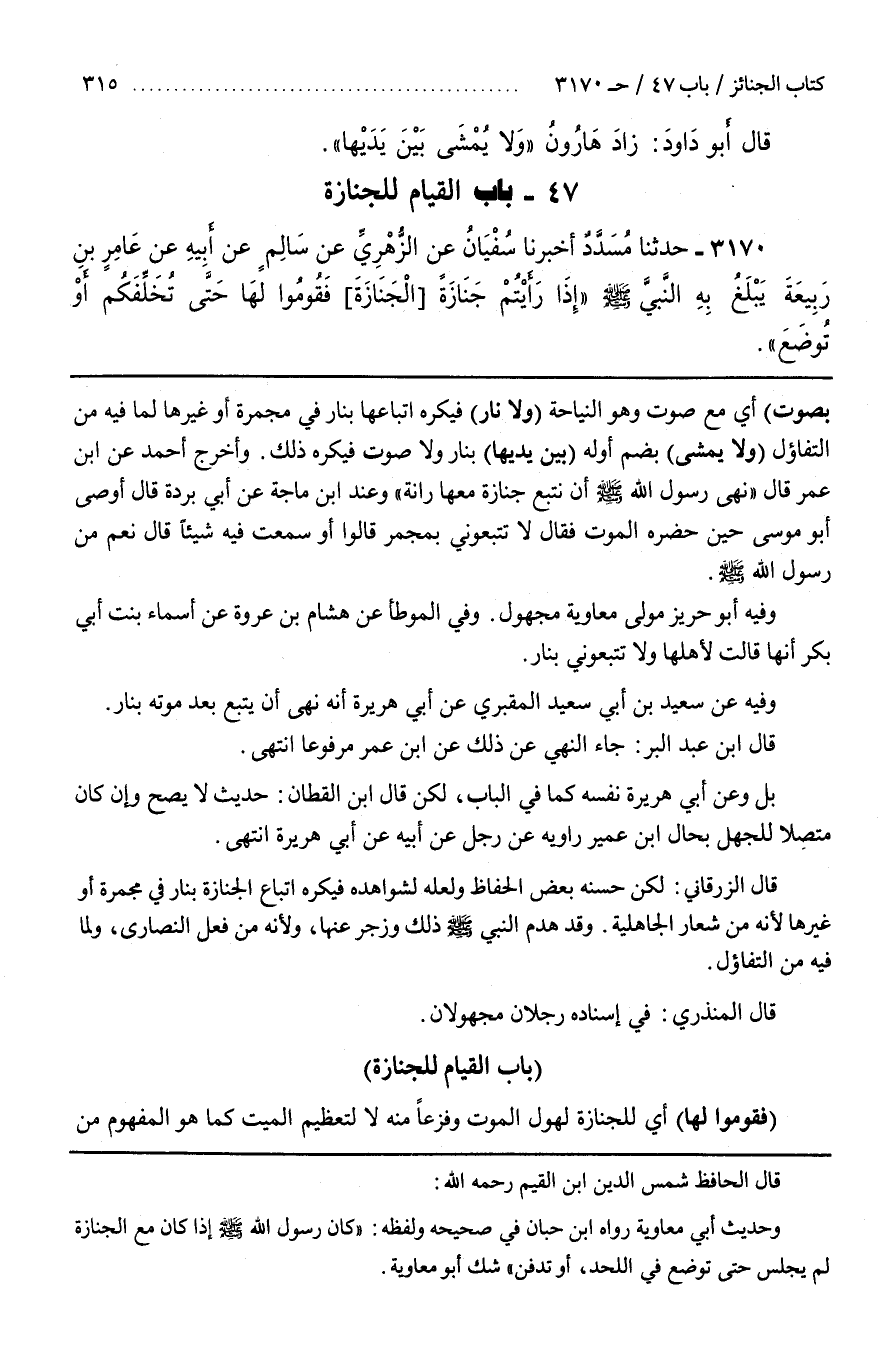 كتاب الجنائز / باب ٤٧ / حـ ٣١٧٠ ............................................. ٣١٥
قال أَبو دَاودَ: زادَ هَارُونُ «وَلا يُمْشَى بَيْنَ يَدَيْها».
٤٧ ـ باب القيام للجنازة
٣١٧٠ ـ حدثنا مُسَدَّدٌ أخبرنا سُفْيَانُ عن الزُّهْرِيِّ عن سَالِمٍ عن أَبِيهِ عن عَامِرِ بنِ
رَبِيعَةَ يَبْلُغُ بِهِ النَّبيَّ ﷺ «إِذَا رَأَيْتُمْ جَنَازَةً [الْجَنَازَةَ] فَقُومُوا لَهَا حَتَّى تُخَلِّفَكُم أَوْ
تُوضَعَ».
بصوت) أي مع صوت وهو النياحة (ولا نار) فيكره اتباعها بنار في مجمرة أو غيرها لما فيه من
التفاؤل (ولا يمشى) بضم أوله (بين يديها) بنار ولا صوت فيكره ذلك. وأخرج أحمد عن ابن
عمر قال «نهى رسول الله ﷺ أن نتبع جنازة معها رانة» وعند ابن ماجة عن أبي بردة قال أوصى
أبو موسى حين حضره الموت فقال لا تتبعوني بمجمر قالوا أو سمعت فيه شيئاً قال نعم من
رسول الله ﷺ.
وفيه أبو حريز مولى معاوية مجهول. وفي الموطأ عن هشام بن عروة عن أسماء بنت أبي
بكر أنها قالت لأهلها ولا تتبعوني بنار.
وفيه عن سعيد بن أبي سعيد المقبري عن أبي هريرة أنه نهى أن يتبع بعد موته بنار.
قال ابن عبد البر: جاء النهي عن ذلك عن ابن عمر مرفوعا انتهى.
بل وعن أبي هريرة نفسه كما في الباب، لكن قال ابن القطان: حديث لا يصح وإن كان
متصلا للجهل بحال ابن عمير راويه عن رجل عن أبيه عن أبي هريرة انتهى.
قال الزرقاني: لكن حسنه بعض الحفاظ ولعله لشواهده فيكره اتباع الجنازة بنار في مجمرة أو
غيرها لأنه من شعار الجاهلية. وقد هدم النبي ﷺ ذلك وزجر عنها، ولأنه من فعل النصارى، ولما
فيه من التفاؤل.
قال المنذري: في إسناده رجلان مجهولان.
(باب القيام للجنازة)
(فقوموا لها) أي للجنازة لهول الموت وفزعاً منه لا لتعظيم الميت كما هو المفهوم من
قال الحافظ شمس الدين ابن القيم رحمه الله:
وحديث أبي معاوية رواه ابن حبان في صحيحه ولفظه: «كان رسول الله ﷺ إذا كان مع الجنازة
لم يجلس حتى توضع في اللحد، أو تدفن» شك أبو معاوية.